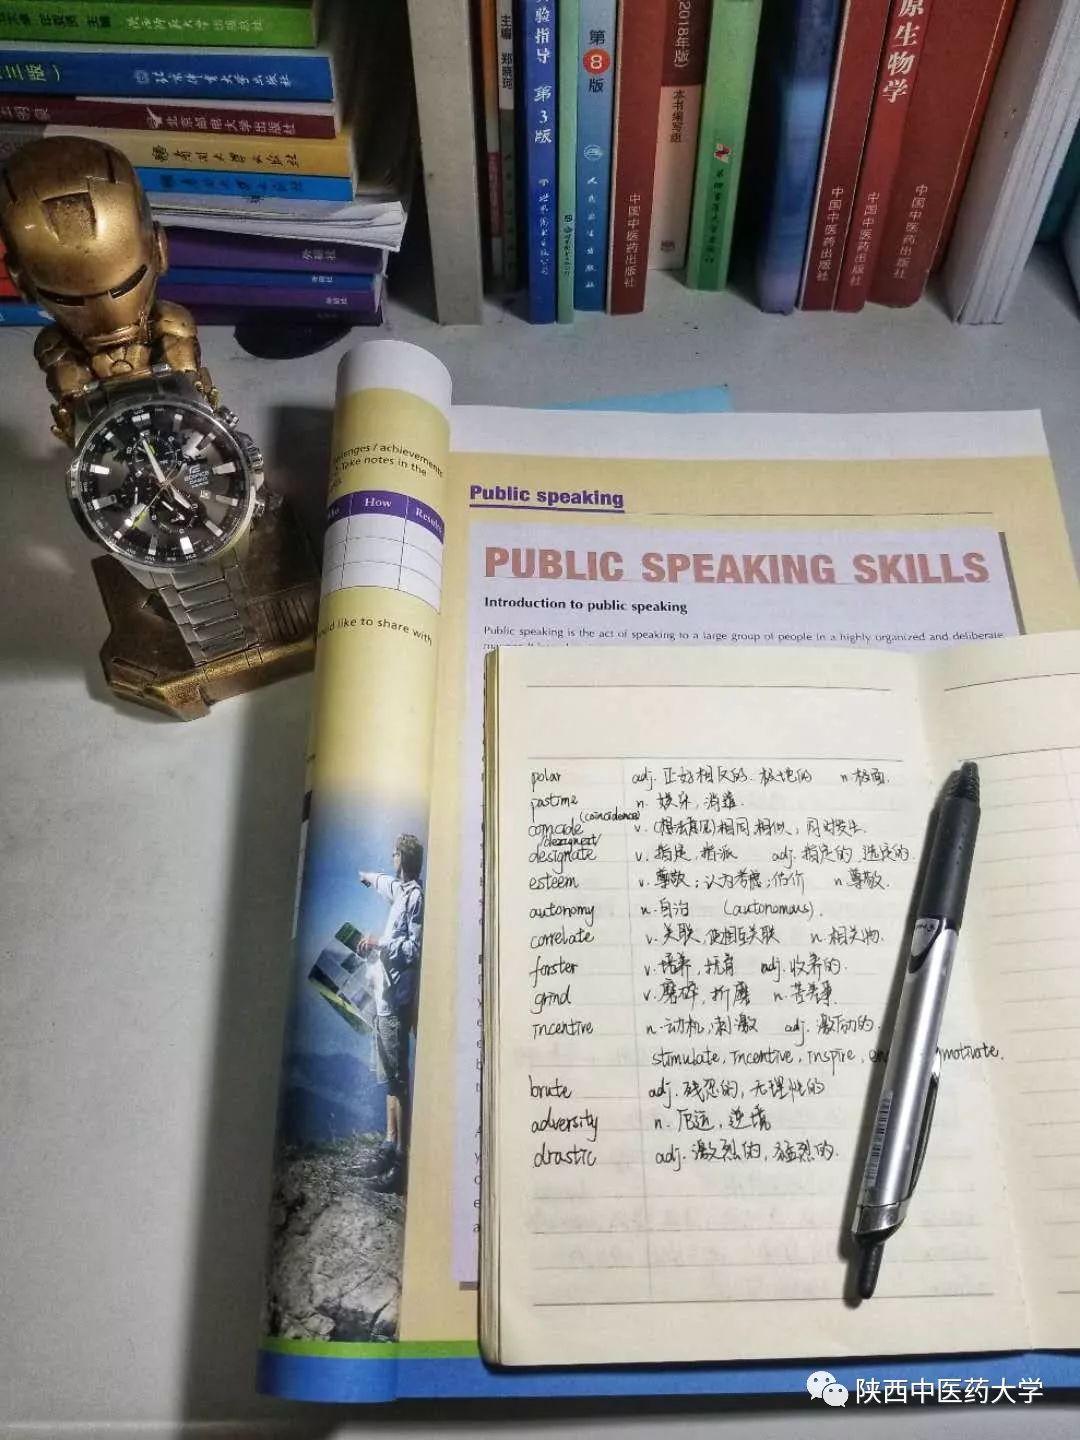 陕西师范大学出版社
三版）
北京体育大学出版社
北京邮电大学出版社
南开大学出版社
主编
验指导 第3版
第8版
人民卫生出版社
2018年版）
本书编写组
中国中医药出版社
原生物学
中国中医药出版社
中国中医药出版社
中国中医药出版社
EDIFICE
CASIO
enges / achievements
Take notes in the
How
Results
ld like to share with
Public speaking
PUBLIC SPEAKING SKILLS
Introduction to public speaking
Public speaking is the act of speaking to a large group of people in a highly organized and deliberate
polar adj. 正好相反的. 极地的 n 极面.
pastime n. 娱乐, 消遣.
(coincidence)
comcide v. (想法意见)相同, 相似, 同时发生.
designate v. 指定, 指派 adj. 指定的 选定的.
esteem v. 尊敬; 认为考虑; 估价 n 尊敬.
autonomy n. 自治 (autonomous).
correlate v. 关联, 使相互关联 n. 相关物.
forster v. 培养, 抚育 adj. 收养的.
grind v. 磨碎, 折磨 n. 苦差事.
incentive n. 动机, 刺激 adj. 激励的.
stimulate, incentive, inspire, en motivate.
brute adj. 残忍的, 无理性的
adversity n. 厄运, 逆境
drastic adj. 激烈的, 猛烈的.
陕西中医药大学